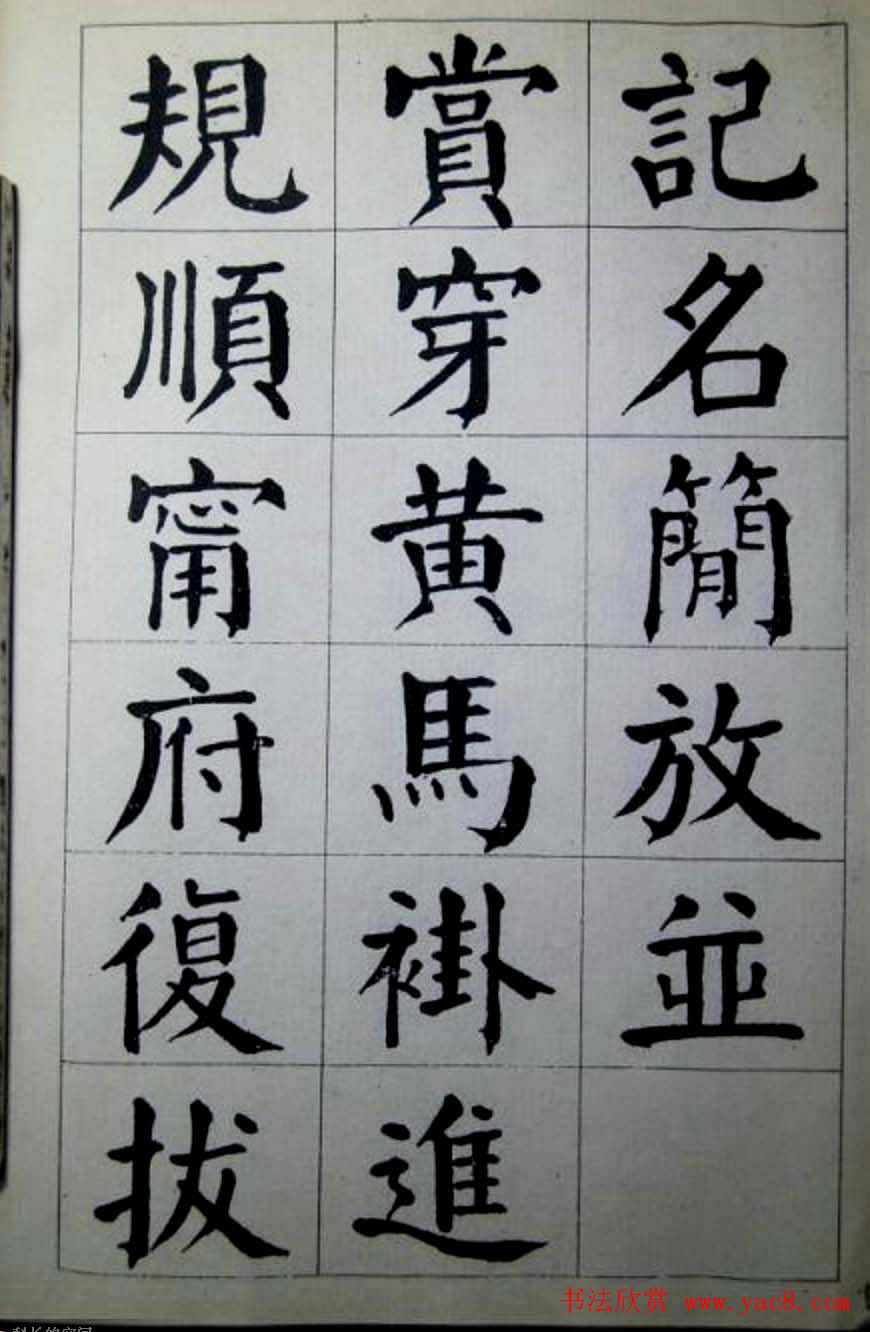 記名簡放並
賞穿黃馬褂進
規順甯府復拔
书法欣赏 www.yac8.com